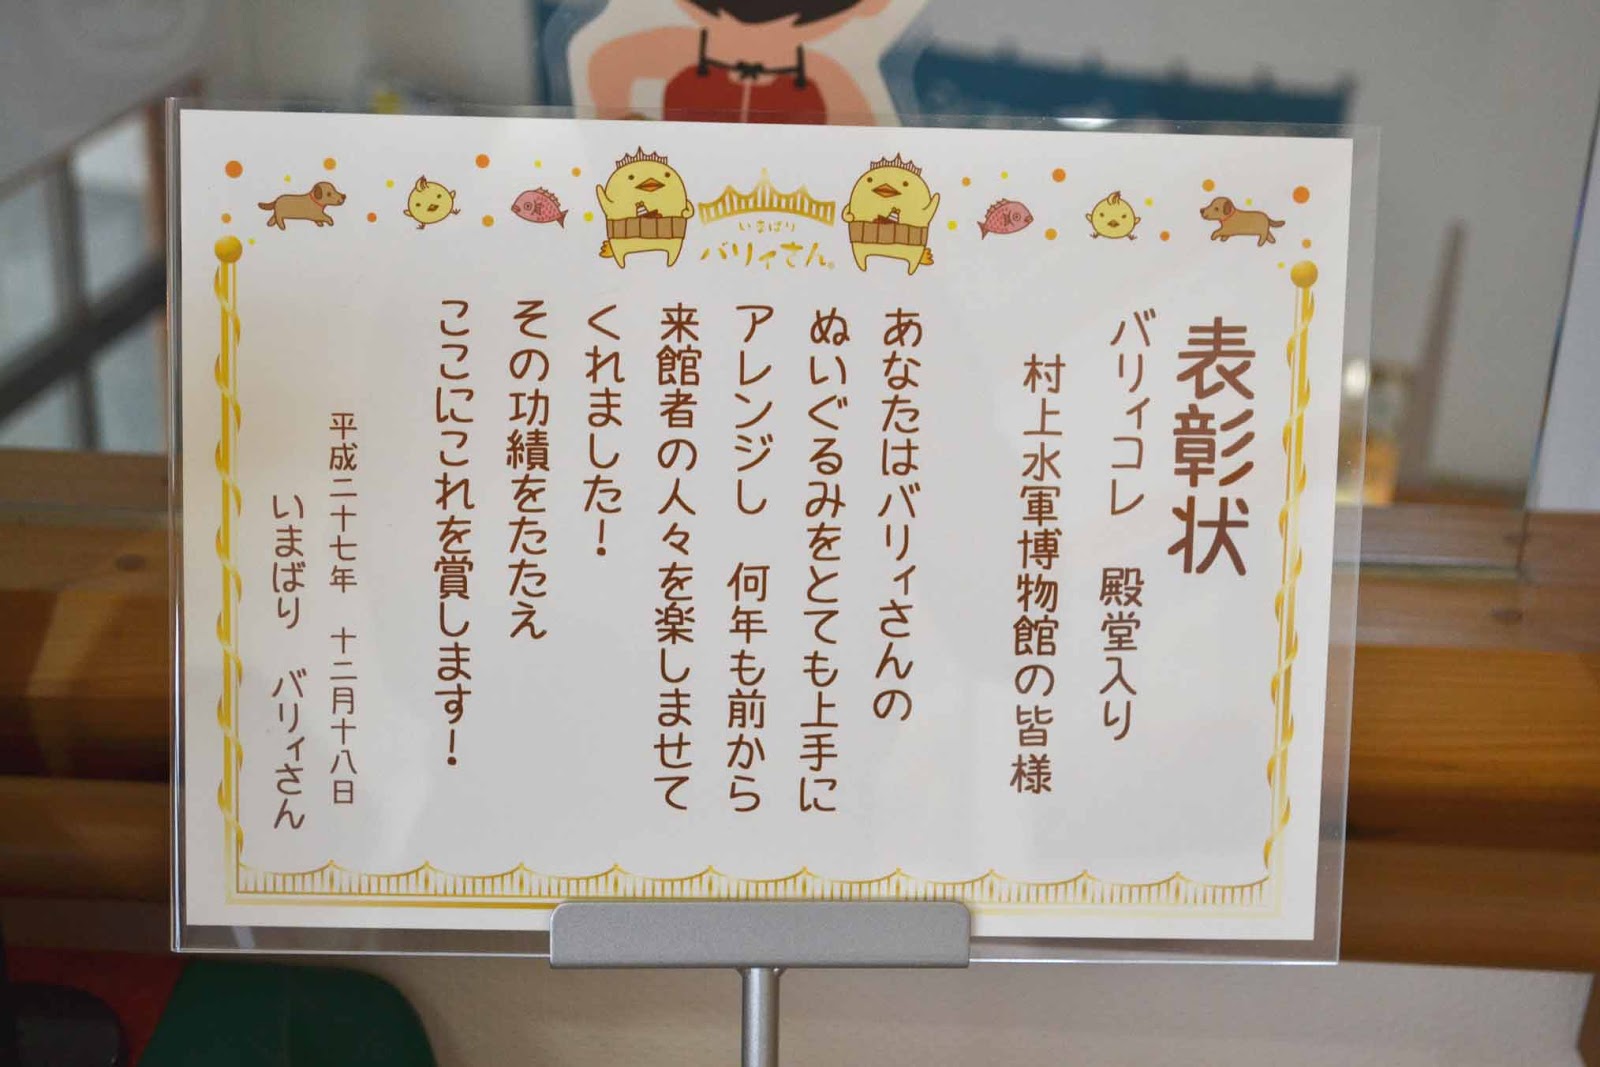 いまばり
バリィさん。
表彰状
バリィコレ　殿堂入り
村上水軍博物館の皆様
あなたはバリィさんの
ぬいぐるみをとても上手に
アレンジし　何年も前から
来館者の人々を楽しませて
くれました！
その功績をたたえ
ここにこれを賞します！
平成二十七年　十二月十八日
いまばり　バリィさん